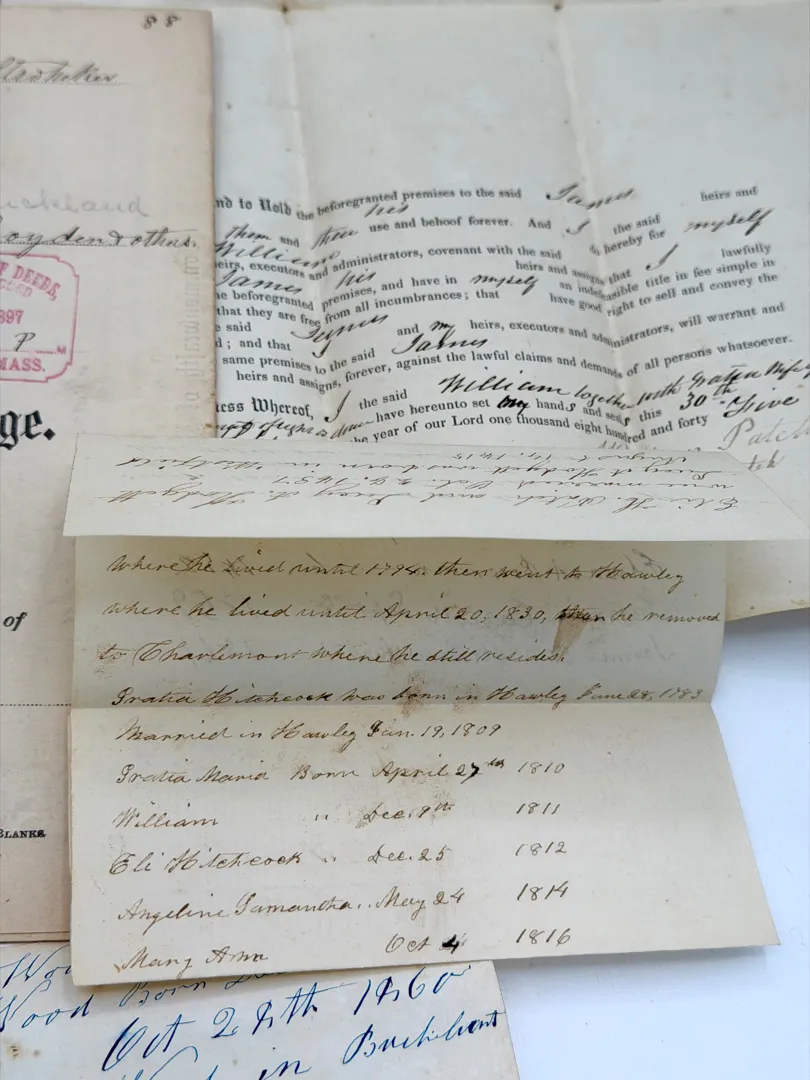 88
Buckland
Boyden & others.
OF DEEDS,
1897
P M
MASS.
ge.
of
BLANKS.
and to Hold the beforegranted premises to the said James heirs and
his use and behoof forever. And I the said
William do hereby for myself
heirs, executors and administrators, covenant with the said
James his heirs and assigns that I lawfully
the beforegranted premises, and have in myself an indefeasible title in fee simple in
that they are free from all incumbrances; that have good right to sell and convey the
said James and my heirs, executors and administrators, will warrant and
d; and that I
same premises to the said James
heirs and assigns, forever, against the lawful claims and demands of all persons whatsoever.
ness Whereof, I the said William together with Gratia Wife of
have hereunto set my hands and seals this 30th
the year of our Lord one thousand eight hundred and forty Five
Patch
Eli H. Patch and Lucy A. Hodgett
were married Oct.
Lucy A. Hodgett was born in
August
where he lived until 1794. then went to Hawley
where he lived until April 20, 1830, than he removed
to Charlemont where he still resides.
Gratia Hitchcock was born in Hawley June 28, 1783
Married in Hawley Jan. 19, 1809
Gratia Maria Born April 27th 1810
William " Dec. 9th 1811
Eli Hitchcock " Dec. 25 1812
Angeline Samantha " May 24 1814
Mary Ann Oct 4 1816
Wood Born
Oct 28th 1860
in Buckland